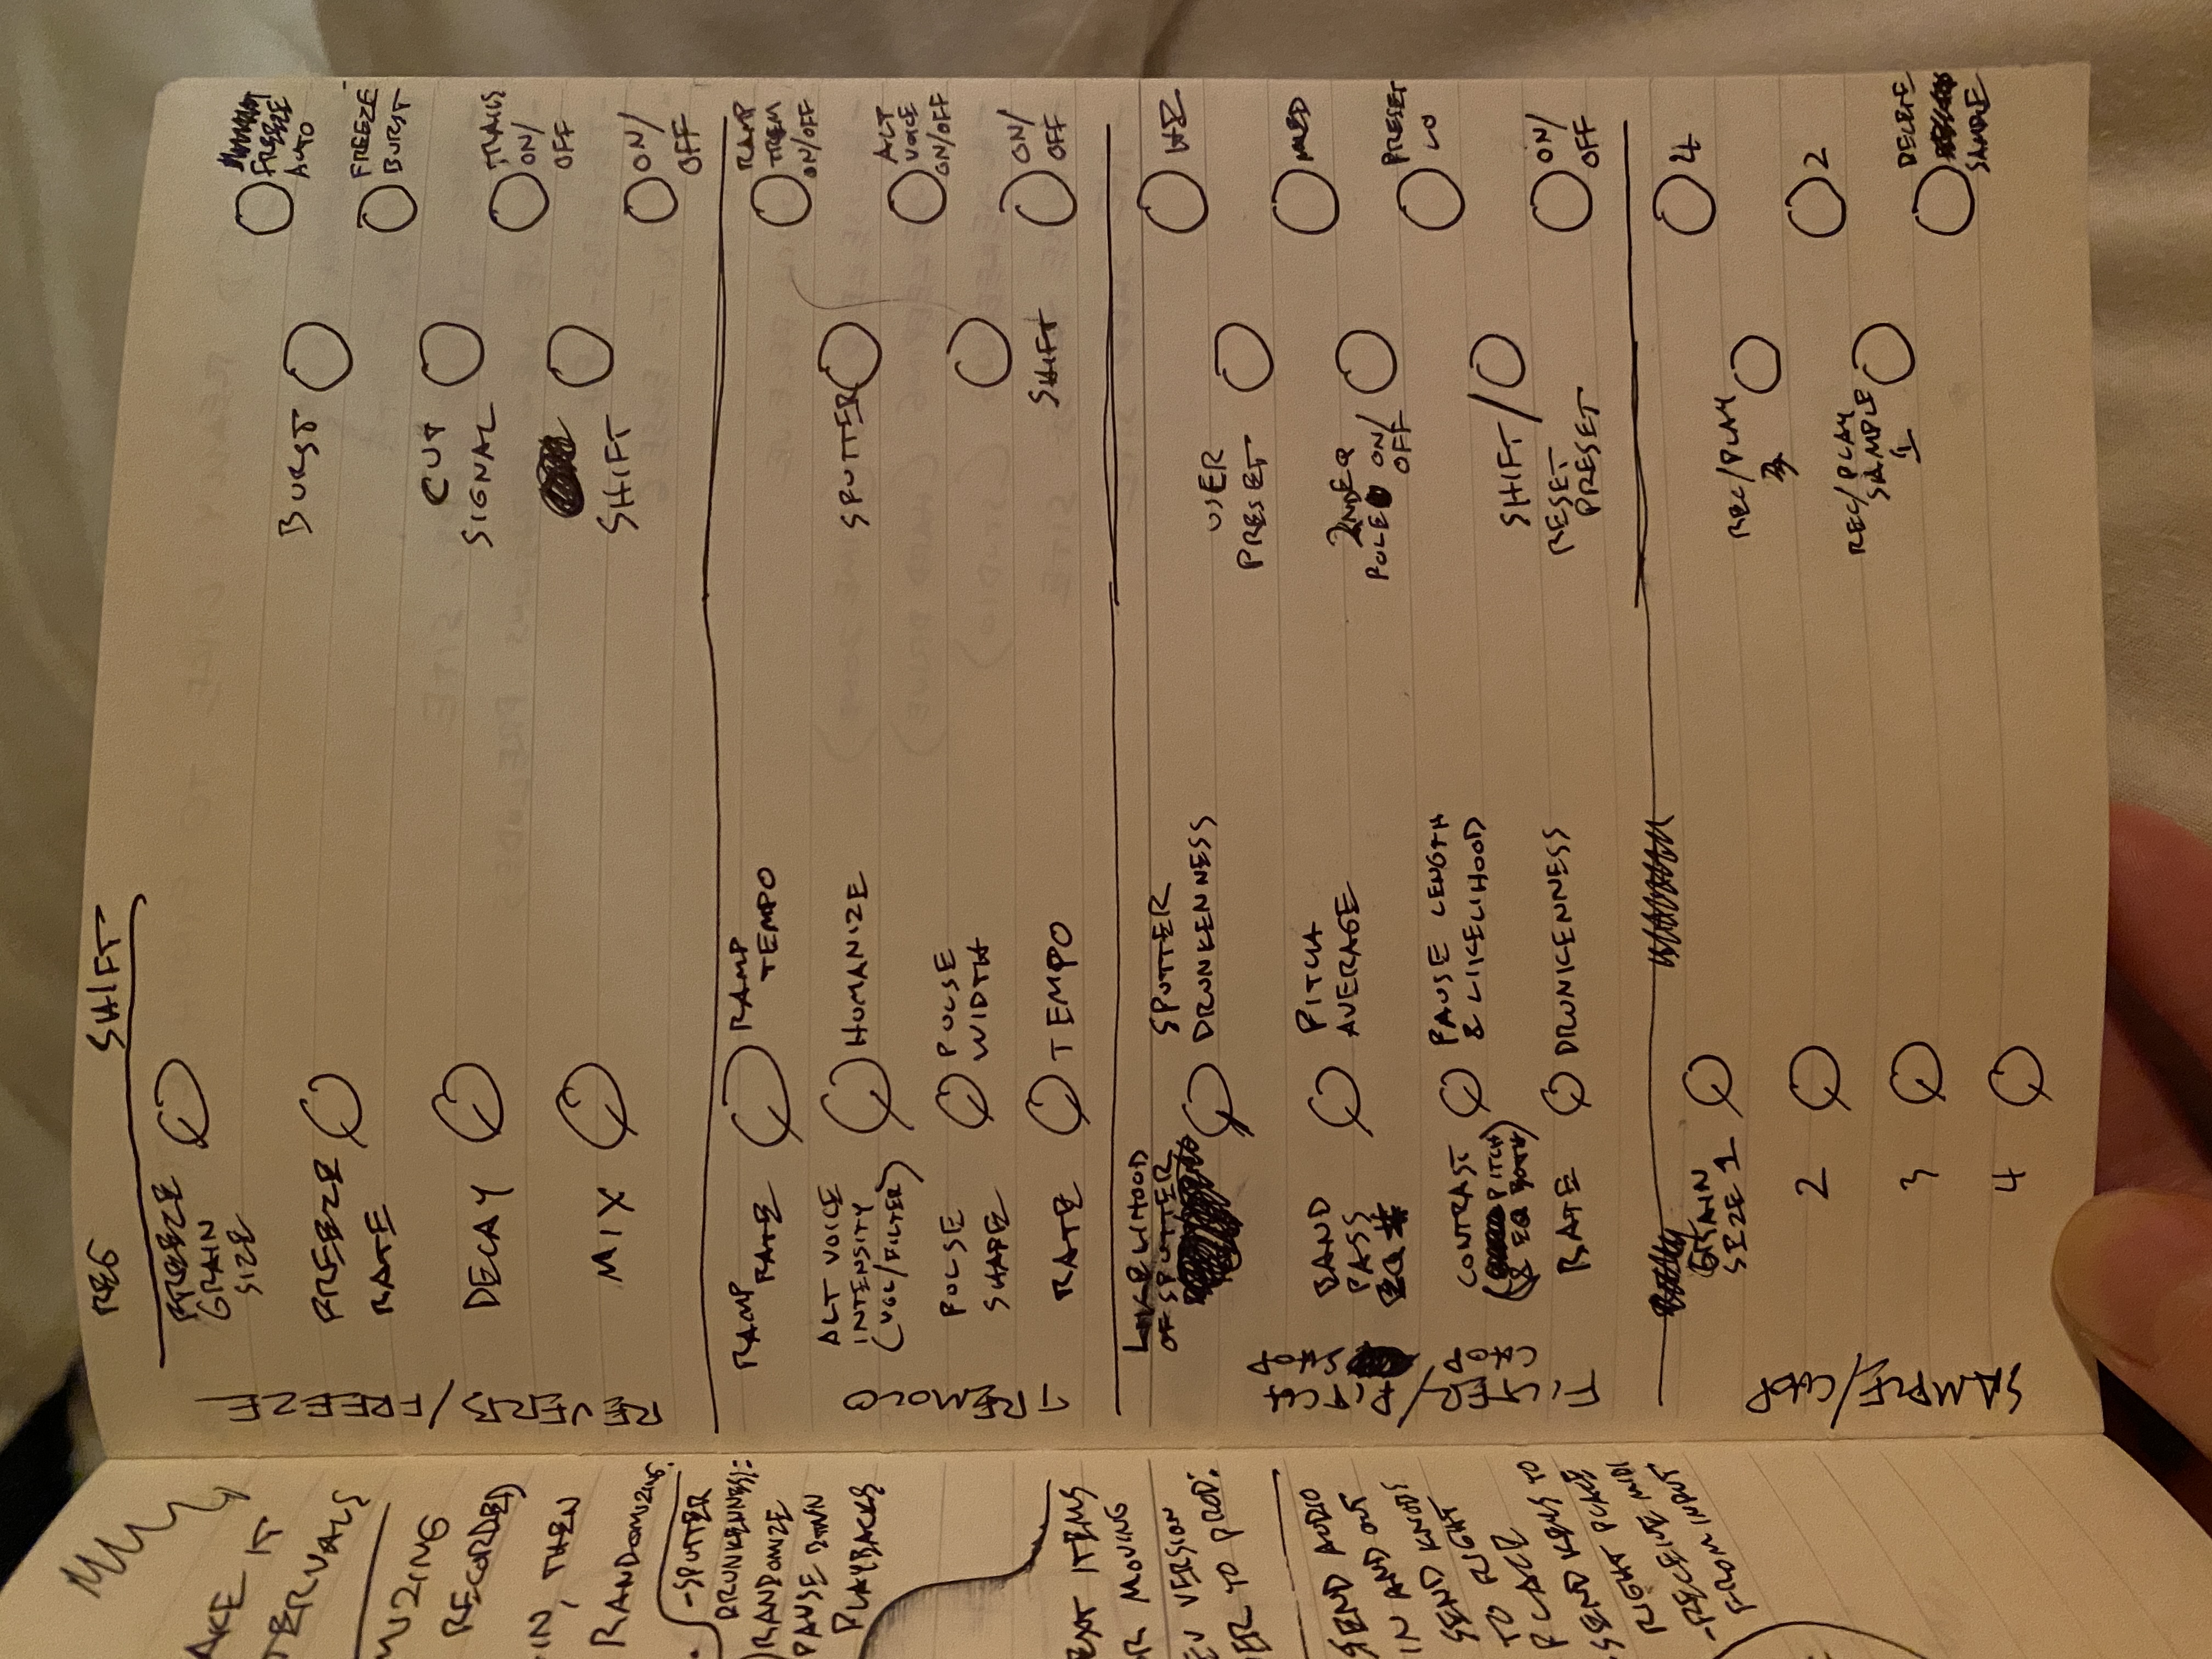 AKE IT
TERVALS
MIZING
RECORDED
IN, THEN
RANDOMIZING.
-SPUTTER
DRUNKENNESS=
RANDOMIZE
PAUSE BTWN
PLAYBACKS
EXT ITEMS
OR MOVING
EV VERSION
ER TO PROD:
SEND AUDIO
IN AND OUT
SEND KNOBS
TO RIGHT
PLACE
-SEND KEYS TO
RIGHT PLACE
-RECEIVE MIDI
FROM INPUT
REG SHIFT
REVERB/FREEZE
FREEZE
GRAIN
SIZE
FREEZE
RATE
DECAY
MIX
BURST
CUT
SIGNAL
SHIFT
FREEZE
AUTO
FREEZE
BURST
TRAILS
ON/
OFF
ON/
OFF
TREMOLO
RAMP
RATE
RAMP
TEMPO
ALT VOICE
INTENSITY
(VOL/FILTER)
HUMANIZE
PULSE
SHAPE
PULSE
WIDTH
RATE
TEMPO
SPUTTER
SHIFT
RAMP
TREM
ON/OFF
ALT
VOICE
ON/OFF
ON/
OFF
FILTER/PITCH
CHOP/SHOP
LIKELIHOOD
OF SPUTTER
SPUTTER
DRUNKENNESS
BAND
PASS
EQ #
PITCH
AVERAGE
CONTRAST
(PITCH
& EQ BOTH)
PAUSE LENGTH
& LIKELIHOOD
RATE
DRUNKENNESS
USER
PRESET
2ND EQ
POLE ON/
OFF
SHIFT/
RESET
PRESET
MED
PRESET
LO
ON/
OFF
SAMPLE/CHOP
GRAIN
SIZE 1
2
3
4
REC/PLAY
3
REC/PLAY
SAMPLE
1
4
2
DELETE
SAMPLE